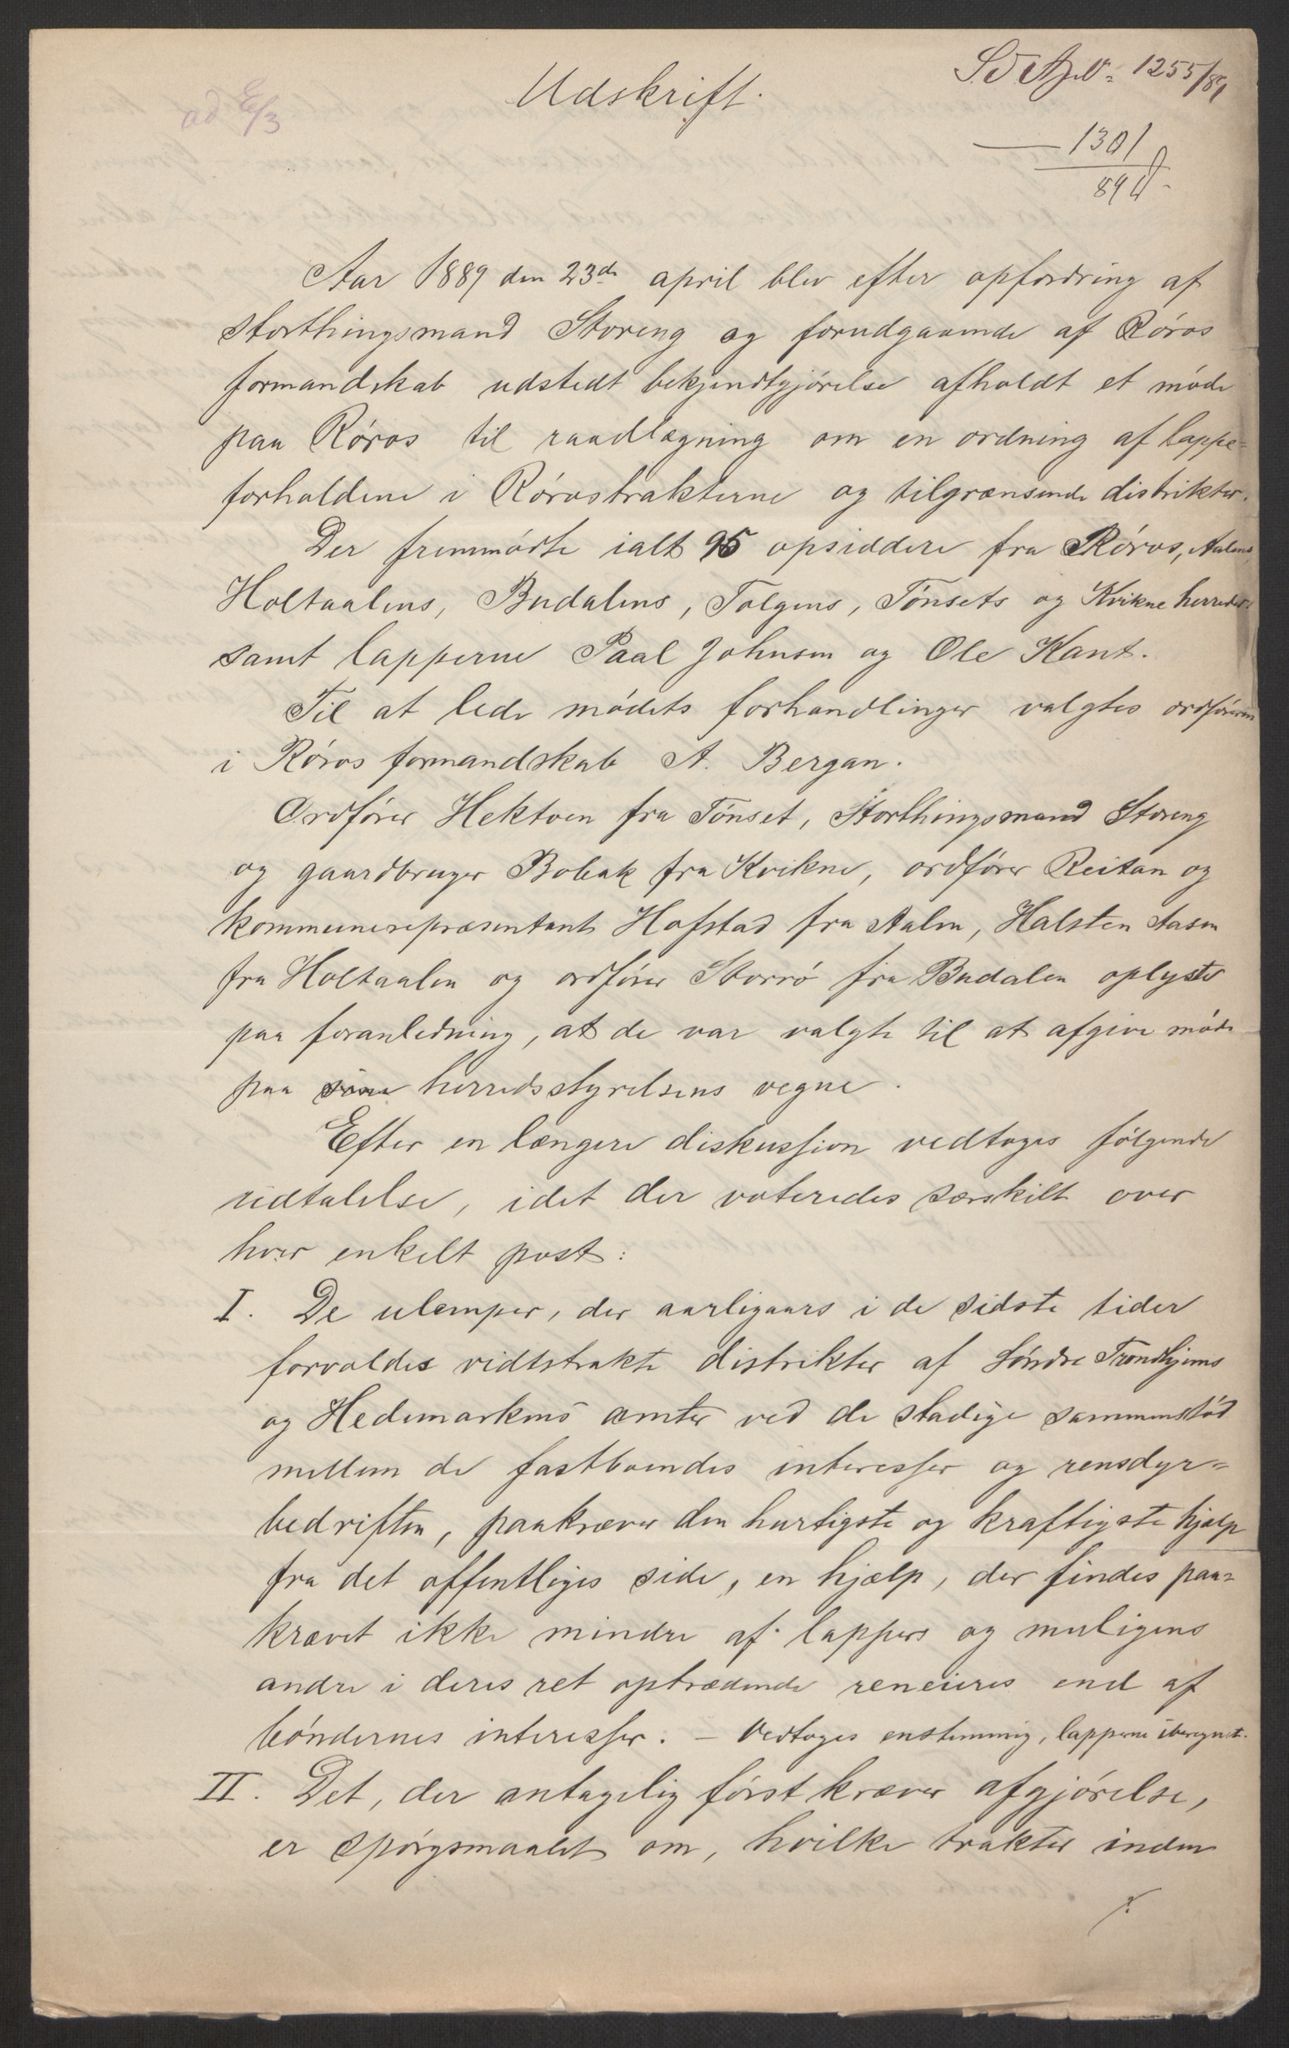 1255/89
Udskrift.
ad E/3
1301
89
Aar 1889 den 23de april blev efter opfordring af
storthingsmand Storeng og forudgaaende af Røros
formandskab udstedt bekjendtgjørelse afholdt et møde
paa Røros til raadlægning om en ordning af lappe-
forholdene i Rørostrakterne og tilgrænsende distrikter.
Der fremmødte ialt 95 opsiddere fra Røros, Aalens,
Holtaalens, Budalens, Tolgens, Tønsets og Kvikne herreder
samt lapperne Paal Johnsen og Ole Kant.
Til at lede mødets forhandlinger valgtes ordføreren
i Røros formandskab A. Bergan.
Ordfører Hektoen fra Tønset, Storthingsmand Storeng
og gaardbruger Bobak fra Kvikne, ordfører Reitan og
kommunerepræsentant Hofstad fra Aalen, Halsten Aasen
fra Holtaalen og ordfører Storrø fra Budalen oplyste
paa foranledning, at de var valgte til at afgive møde
paa sine herredsstyrelsens vegne.
Efter en længere diskussion vedtoges følgende
udtalelse, idet der voteredes særskilt over
hver enkelt post:
I. De ulemper, der aarligaars i de sidste tider
forvoldes vidtstrakte distrikter af Søndre Trondhjems
og Hedemarkens amter ved de stadige sammenstød
mellem de fastboendes interesser og rensdyr-
bedriften, paakræver den hurtigste og kraftigste hjælp
fra det offentliges side, en hjælp, der findes paa-
krævet ikke mindre af lappers og muligens
andre i deres ret optrædende reneieres end af
bøndernes interesser. - Vedtoges enstemmig, lapperne iberegnet.
II. Det, der antagelig først kræver afgjørelse,
er spørgsmaalet om, hvilke trakter inden